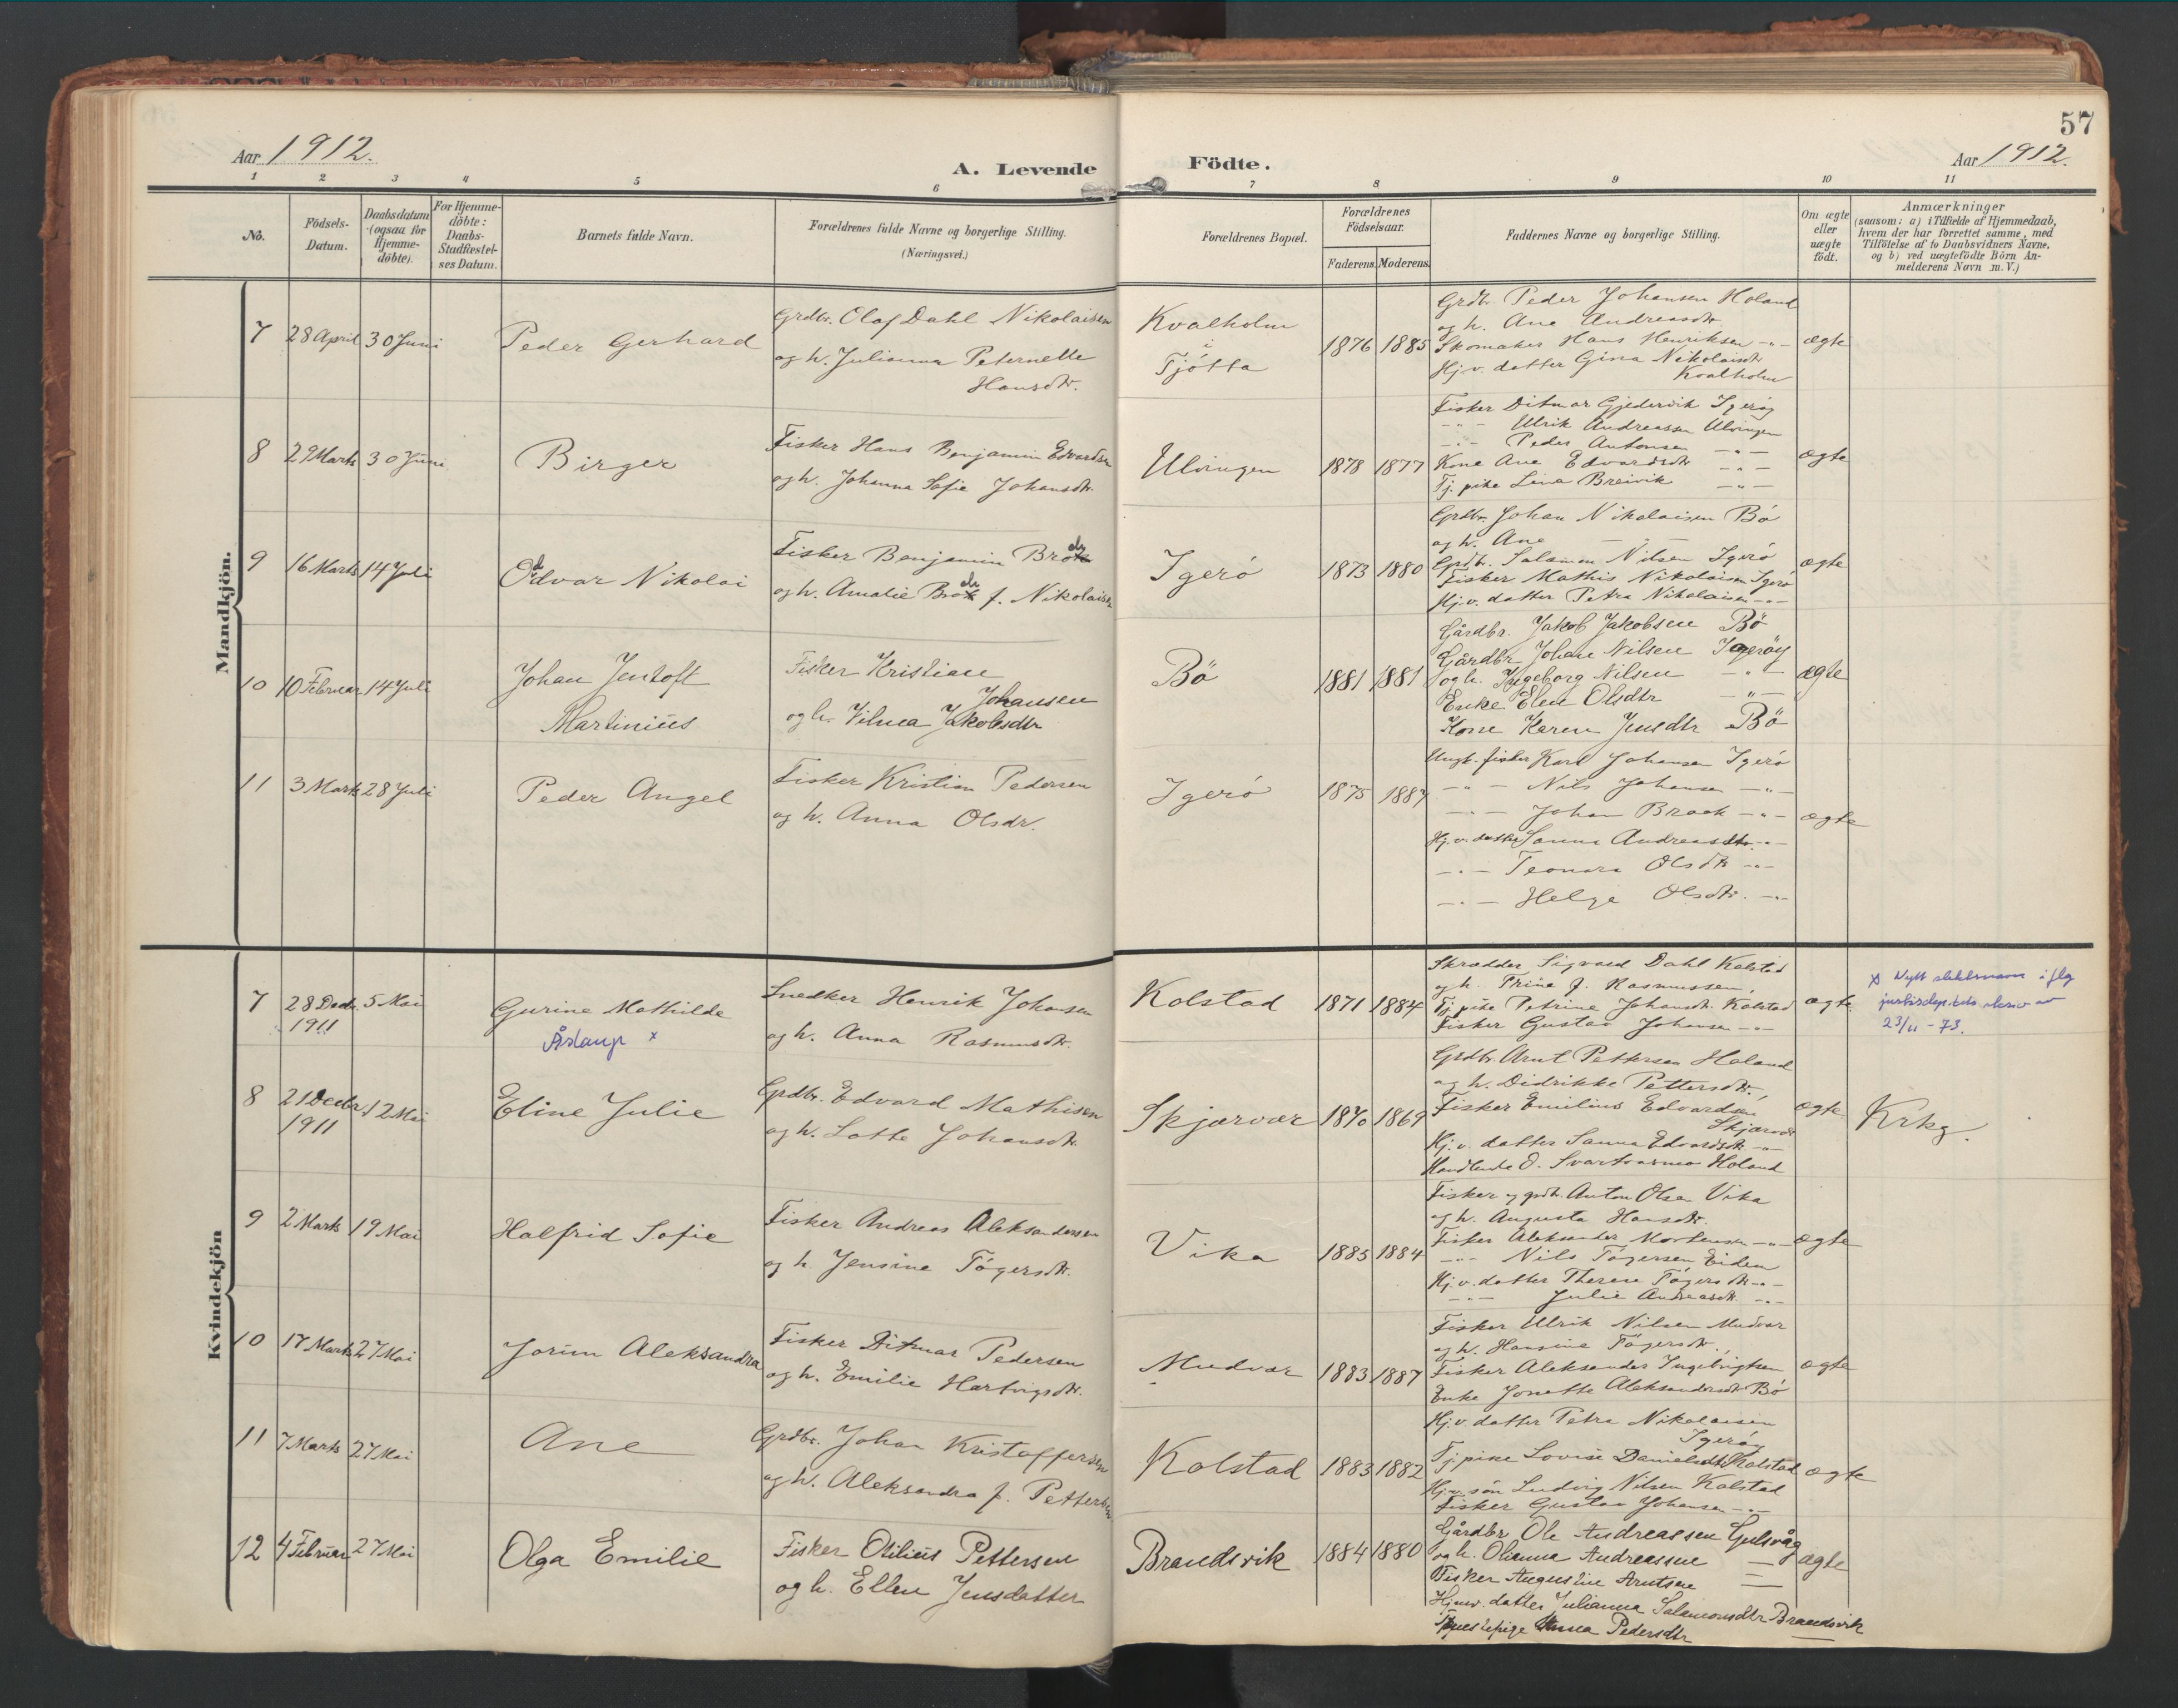 57
Aar 1912.
A. Levende Födte.
Aar 1912.
1 2 3 4 5 6 7 8 9 10 11
No.
Födsels-Datum.
Daabsdatum (ogsaa for Hjemme-döbte).
For Hjemme-döbte: Daabs-Stadfæstel-ses Datum.
Barnets fulde Navn.
Forældrenes fulde Navne og borgerlige Stilling.
(Næringsvei.)
Forældrenes Bopæl.
Forældrenes Födselsaar.
Faderens. Moderens.
Faddernes Navne og borgerlige Stilling.
Om ægte eller uægte födt.
Anmærkninger
(saasom: a) i Tilfælde af Hjemmedaab, hvem der har forrettet samme, med Tilföielse af to Daabsvidners Navne. og b) ved uægtefödte Börn An-melderens Navn m. V.)
Mandkjön.
7 28 April 30 Juni
Peder Gerhard
Grdbr. Olaf Dahl Nikolaisen
og h. Julianna Peternelle
Hansdtr.
Kvalholm
i
Tjötta
1876 1885
Grdbr. Peder Johansen Holand
og h. Ane Andreasdtr.
Skomaker Hans Henriksen -"-
Hj.v. datter Gina Nikolaisdtr
Kvalholm
ægte
8 29 Marts 30 Juni
Birger
Fisker Hans Benjamin Edvardsen
og h. Johanna Sofie Johansdtr.
Ulvingen
1878 1877
Fisker Ditmar Gjedervik Igerøy
-"- Ulrik Andreassen Ulvingen
-"- Peder Antonsen -"-
Kone Ane Edvardsdtr -"-
Tj. pike Lina Breivik -"-
ægte
9 16 Marts 14 Juli
Oddvar Nikolai
Fisker Benjamin
og h. Amalie f. Nikolaisen
Igerö
1873 1880
Grdbr. Johan Nikolaisen Bö
og h. Ane - -
Grdb. Salamon Nilsen Igerö
Fisker Mathis Nikolaisen Igerö
Hj.v. datter Petra Nikolaisen -"-
ægte
10 10 Februar 14 Juli
Johan Jentoft
Martinius
Fisker Kristian
Johansen
og h. Vilma Jakobsdtr
Bö
1881 1881
Gårdbr. Jakob Jakobsen Bö
Gårdbr Johan Nilsen Igerøy
og h. Ingeborg Nilsen -"-
Enke Elen Olsdtr -"-
Kone Karen Jensdtr Bö
ægte
11 3 Marts 28 Juli
Peder Angel
Fisker Kristian Pedersen
og h. Anna Olsdr.
Igerö
1875 1887
Ungk. fisker Karl Johansen Igerö
-"- Nils Johansen -"-
-"- Johan Braek -"-
Hj.v. datter Sanna Andreasdtr. -"-
-"- Teonora Olsdtr -"-
-"- Helga Olsdtr. -"-
ægte
Kvindekjön
7 28 Decbr. 1911 5 Mai
Gurine Mathilde
Åslaug x
Snedker Henrik Johansen
og h. Anna Rasmusdtr.
Kolstad
1871 1884
Skrædder Sigvard Dahl Kolstad
og h. Trine f. Rasmussen,
Tj. pike Petrine Johansdtr. Kolstad
Fisker Gustav Johansen -"-
ægte
x Nytt slektsnavn ifølg
justisdep.tets skriv av
23/11 - 73.
8 21 Decbr. 1911 12 Mai
Eline Julie
Grdbr. Edvard Mathisen
og h. Lotte Johansdtr.
Skjærvær
1870 1869
Grdbr. Arnt Pettersen Holand
og h. Didrikke Pettersdtr.,
Fisker Emilius Edvardsen
Skjærvær
Hj.v. datter Sanna Edvardsdtr. -"-
Handlende O. Svartvasmo Holand
ægte
Krkg.
9 2 Marts 19 Mai
Halfrid Sofie
Fisker Andreas Aleksandersen
og h. Jensine Tögersdtr.
Vika
1885 1884
Fisker og grdb. Anton Olsen Vika
og h. Augusta Hansdtr.
Fisker Aleksander Mortensen -"-
-"- Nils Tögersen Eidem
Hj.v. datter Therese Tögersdtr. -"-
-"- Julie Andreasdtr. -"-
ægte
10 17 Marts 27 Mai
Jorun Aleksandra
Fisker Ditmar Pedersen
og h. Emilie Hartvigsdtr.
Mudvær
1883 1887
Fisker Ulrik Nilsen Mudvær
og h. Hansine Tögersdtr.,
Fisker Aleksander Ingebrigtsen
Enke Jonette Aleksandersdtr Bö
Hj.v. datter Petra Nikolaisen
Igerö
ægte
11 7 Marts 27 Mai
Ane
Grdbr. Johan Kristoffersen
og h. Aleksandra f. Pettersen
Kolstad
1883 1882
Tj. pike Lovise Danielsdtr Kolstad
Hj.v. søn Ludvig Nilsen Kolstad
Fisker Gustav Johansen -"-
ægte
12 4 Februar 27 Mai
Olga Emilie
Fisker Otilius Pettersen
og h. Ellen Jensdatter
Brandsvik
1884 1880
Gårdbr Ole Andreassen Gulsvåg
og h. Olianna Andreassen -
Fisker Augustin Arntsen =
Hjmv. datter Julianna Salamonsdtr Brandsvik
Tjenestepige Anna Pedersdtr
ægte